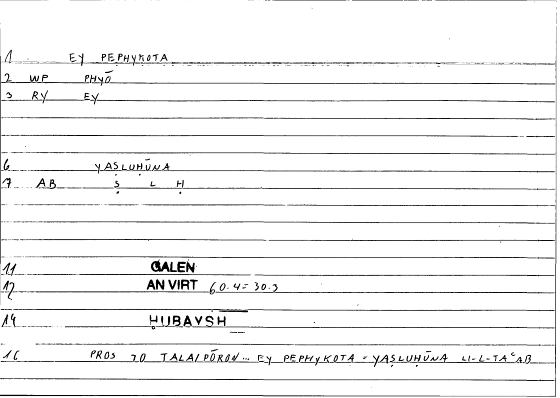 1 EY PEPHYKOTA
2 WP PHYŌ
3 RY EY
6 YAṢLUḤŪNA
7 AB Ṣ L Ḥ
11 GALEN
12 AN VIRT 60.4 = 30.3
14 ḤUBAYSH
16 PROS TO TALAIPŌRON... EY PEPHYKOTA = YAṢLUḤŪNA LI-L-TAᶜAB